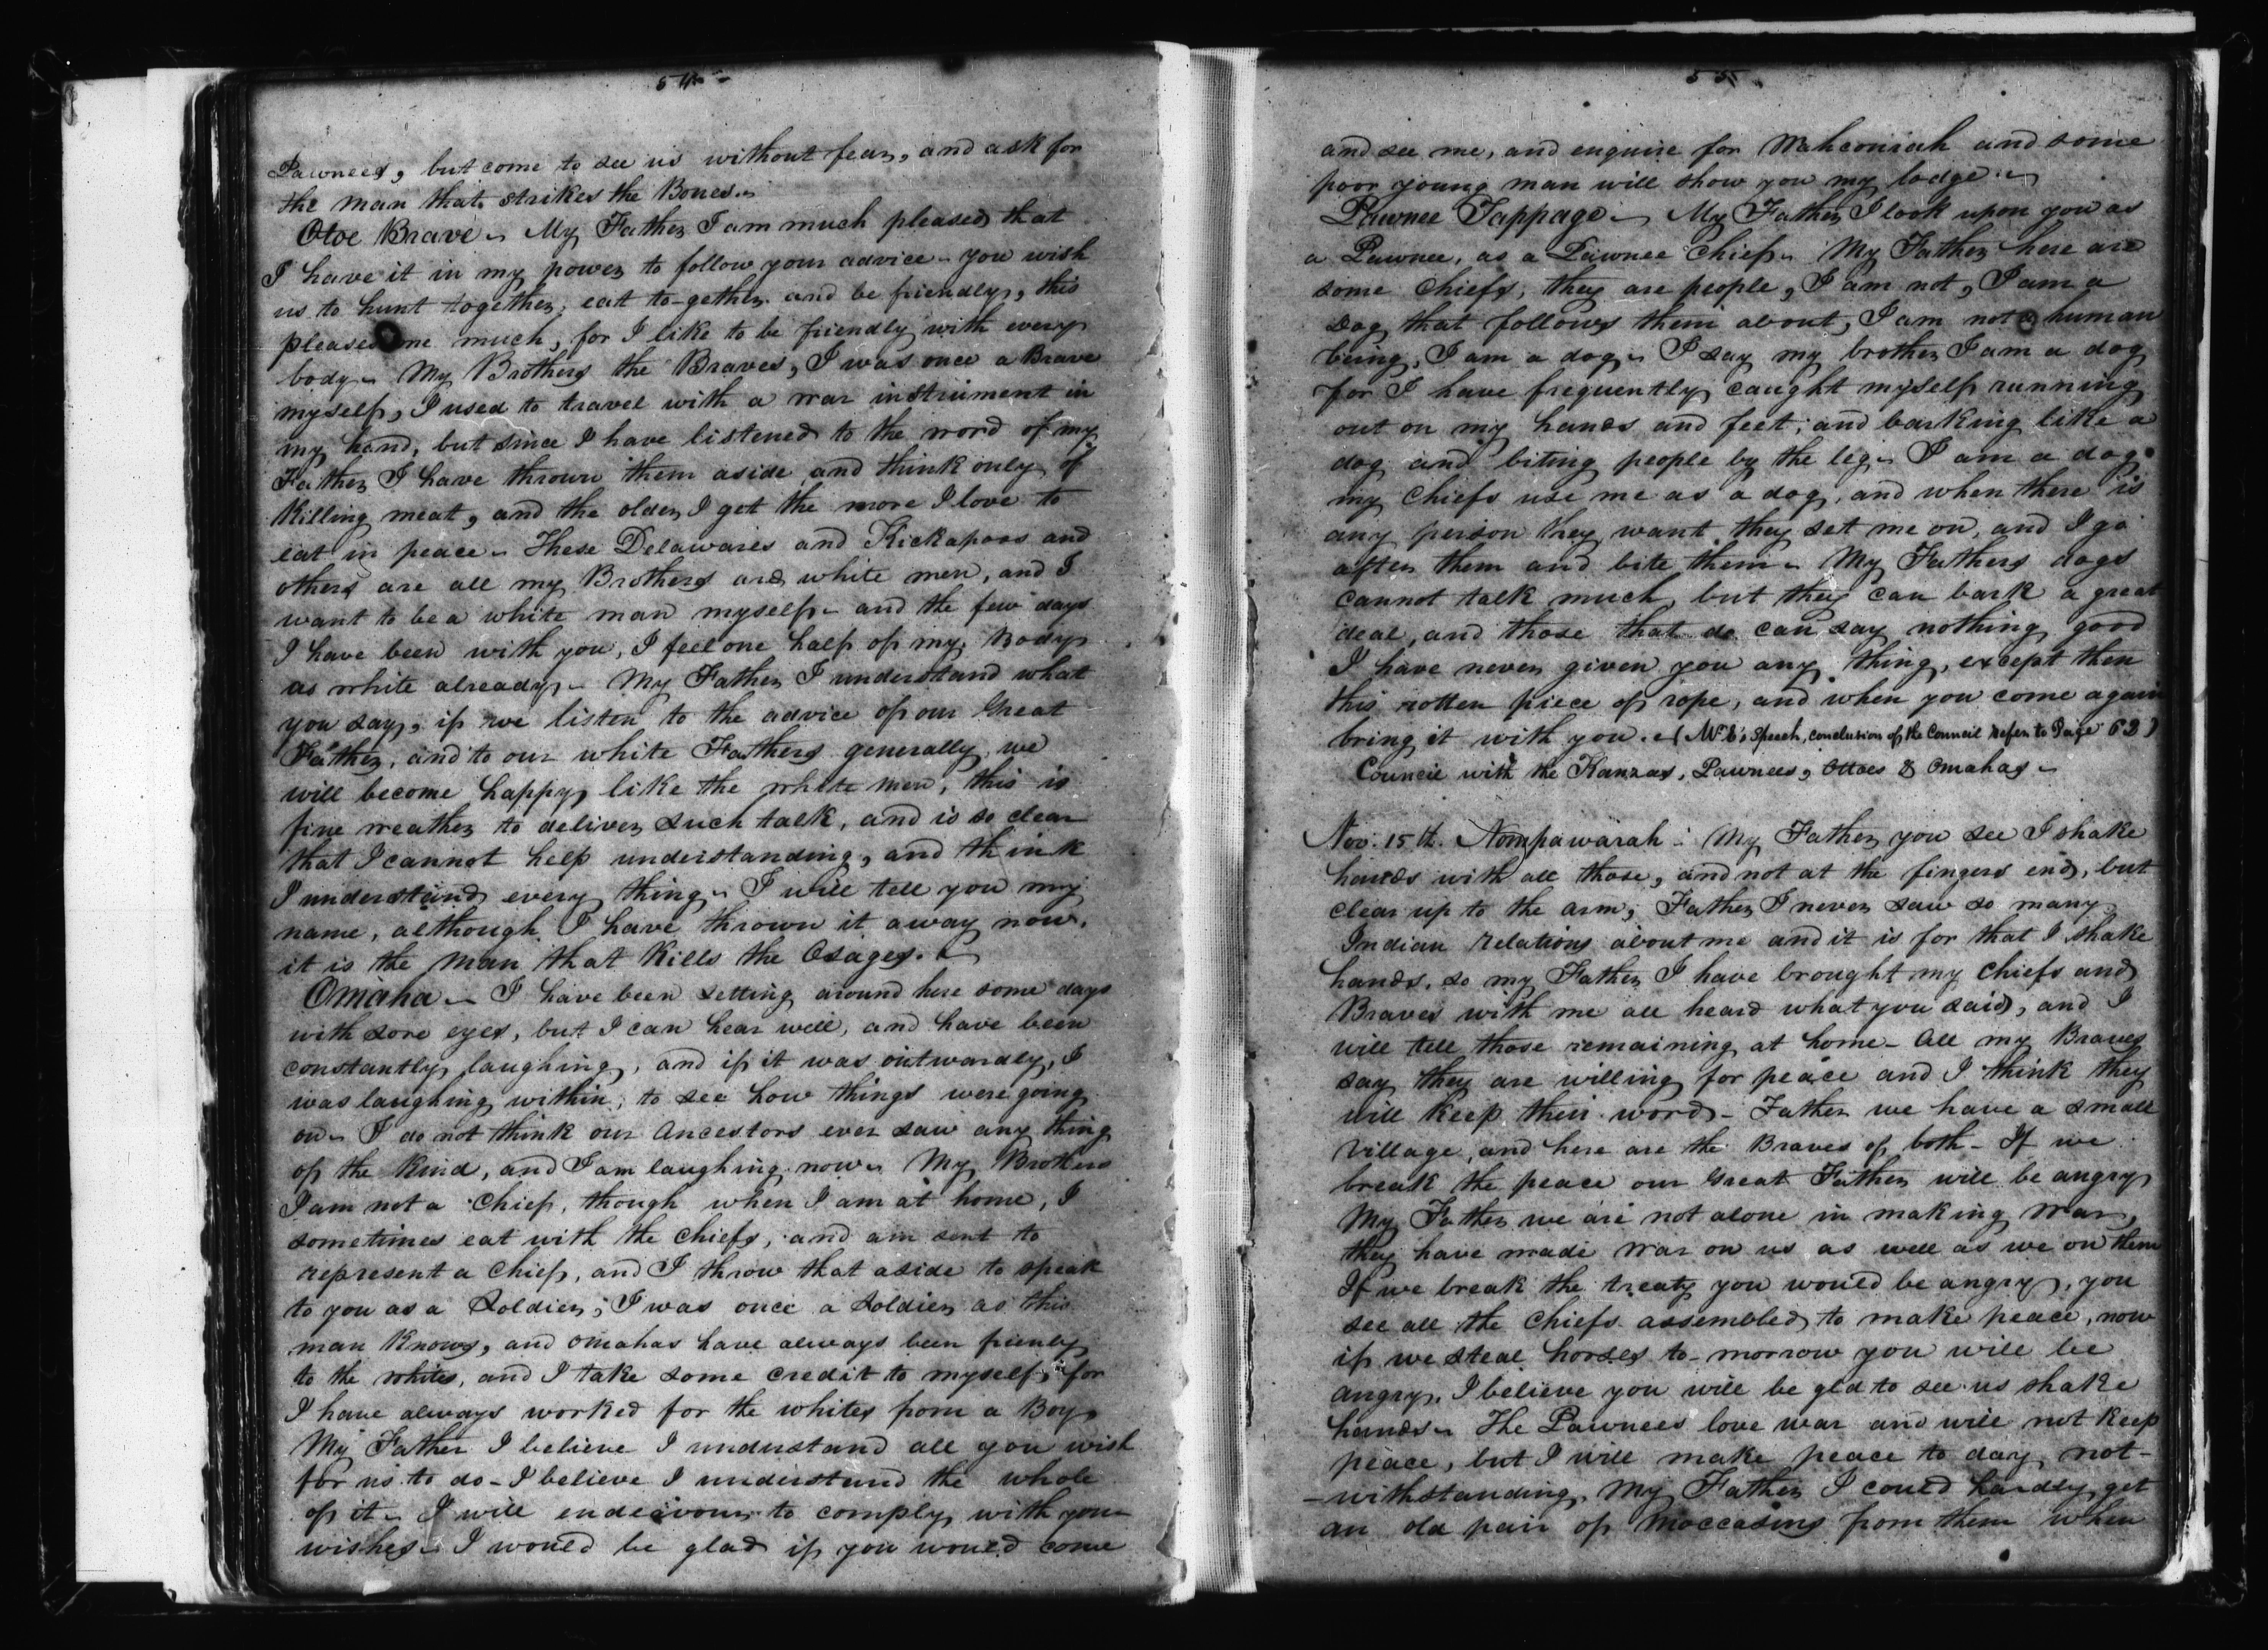 54 -
Pawnees, but come to see us without fear, and ask for
the man that strikes the Bones.
Otoe Brave - My Father I am much pleased that
I have it in my power to follow your advice - you wish
us to hunt together, eat to-gether and be friendly, this
pleased me much, for I like to be friendly with every
body - My Brothers the Braves, I was once a Brave
myself, I used to travel with a war instrument in
my hand, but since I have listened to the word of my
Father I have thrown them aside and think only of
Killing meat, and the older I get the more I love to
eat in peace - These Delawares and Kickapoos and
others are all my Brothers and white men, and I
want to be a white man myself - and the few days
I have been with you, I feel one half of my Body
as white already - My Father I understand what
you say, if we listen to the advice of our Great
Father, and to our white Fathers generally we
will become happy like the white men, this is
fine weather to deliver such talk, and is so clear
that I cannot help understanding, and think
I understand every thing - I will tell you my
name, although I have thrown it away now,
it is the Man that Kills the Osages. -
Omaha - I have been setting around here some days
with sore eyes, but I can hear well, and have been
constantly laughing, and if it was outwardly, I
was laughing within, to see how things were going
on - I do not think our Ancestors ever saw any thing
of the Kind, and I am laughing now - My Brothers
I am not a Chief, though when I am at home, I
sometimes eat with the Chiefs, and am sent to
represent a Chief, and I throw that aside to speak
to you as a Soldier; I was once a Soldier as this
man Knows, and Omahas have always been frienly
to the whites, and I take some credit to myself, for
I have always worked for the whites from a Boy
My Father I believe I undustand all you wish
for us to do - I believe I understand the whole
of it - I will endeavour to comply with your
wishes - I would be glad if you would come
55 -
and see me, and enquire for Wahconiah and some
poor young man will show you my lodge -
Pawnee Tappage - My Father I look upon you as
a Pawnee, as a Pawnee Chief - My Father here are
some Chiefs, they are people, I am not, I am a
Dog that follows them about, I am not a human
being, I am a dog - I say my brother I am a dog
for I have frequently caught myself running
out on my hands and feet, and barking like a
dog and biting people by the leg - I am a dog.
my Chiefs use me as a dog, and when there is
any person they want they set me on, and I go
after them and bite them - My Fathers dogs
cannot talk much, but they can bark a great
deal, and those that do can say nothing good
I have never given you any thing, except then
this rotten piece of rope, and when you come again
bring it with you. - (Mr E's Speech, conclusion of the Council refer to Page 63)
Council with the Kanzas, Pawnees, Ottoes & Omahas -
Nov. 15th. Nompawarah - My Father you see I shake
hands with all those, and not at the fingers end, but
clear up to the arm; Father I never saw so many
Indian relations about me and it is for that I shake
hands, so my Father I have brought my Chiefs and
Braves with me all heard what you said, and I
will tell those remaining at home - All my Braves
say they are willing for peace and I think they
will keep their word - Father we have a small
Village, and here are the Braves of both - If we
break the peace our Great Father will be angry
My Father we are not alone in making war,
they have made war on us as well as we on them
If we break the treaty you would be angry, you
see all the Chiefs assembled to make peace, now
if we steal horses to-morrow you will be
angry, I believe you will be glad to see us shake
hands - The Pawnees love war and will not Keep
peace, but I will make peace to day not-
-withstanding. My Father I could hardly get
an old pair of Moccasins from them when